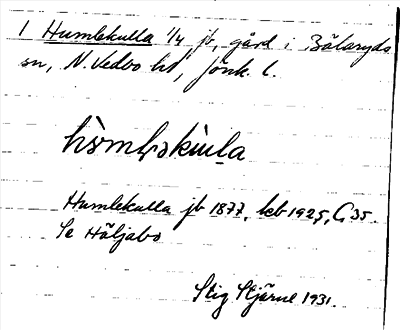 1 Humlekulla 1/4 jb, gård i Bälaryds
sn, N. Vedbo hd, Jönk. l.
Humlekulla jb 1877, kb 1925, G 35.
Se Häljabo
Stig Stjärne 1931.